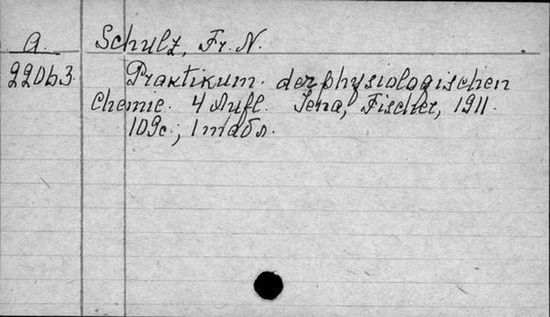 A. Schulz, Fr. N.
220b.3 Praktikum der physiologischen
Chemie. 4 Aufl. Jena, Fischer, 1911.
109с., 1 табл.